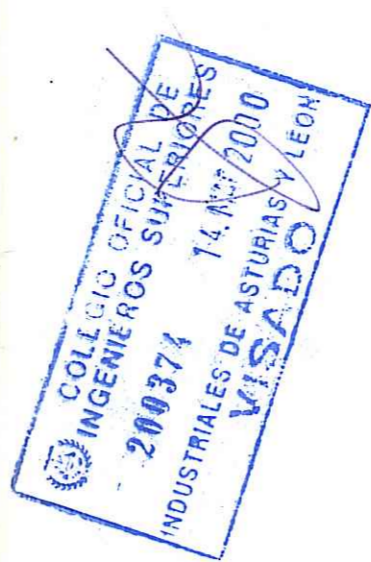 COLEGIO OFICIAL DE
INGENIEROS SUPERIORES
200374 14. 2000
INDUSTRIALES DE ASTURIAS Y LEON
VISADO